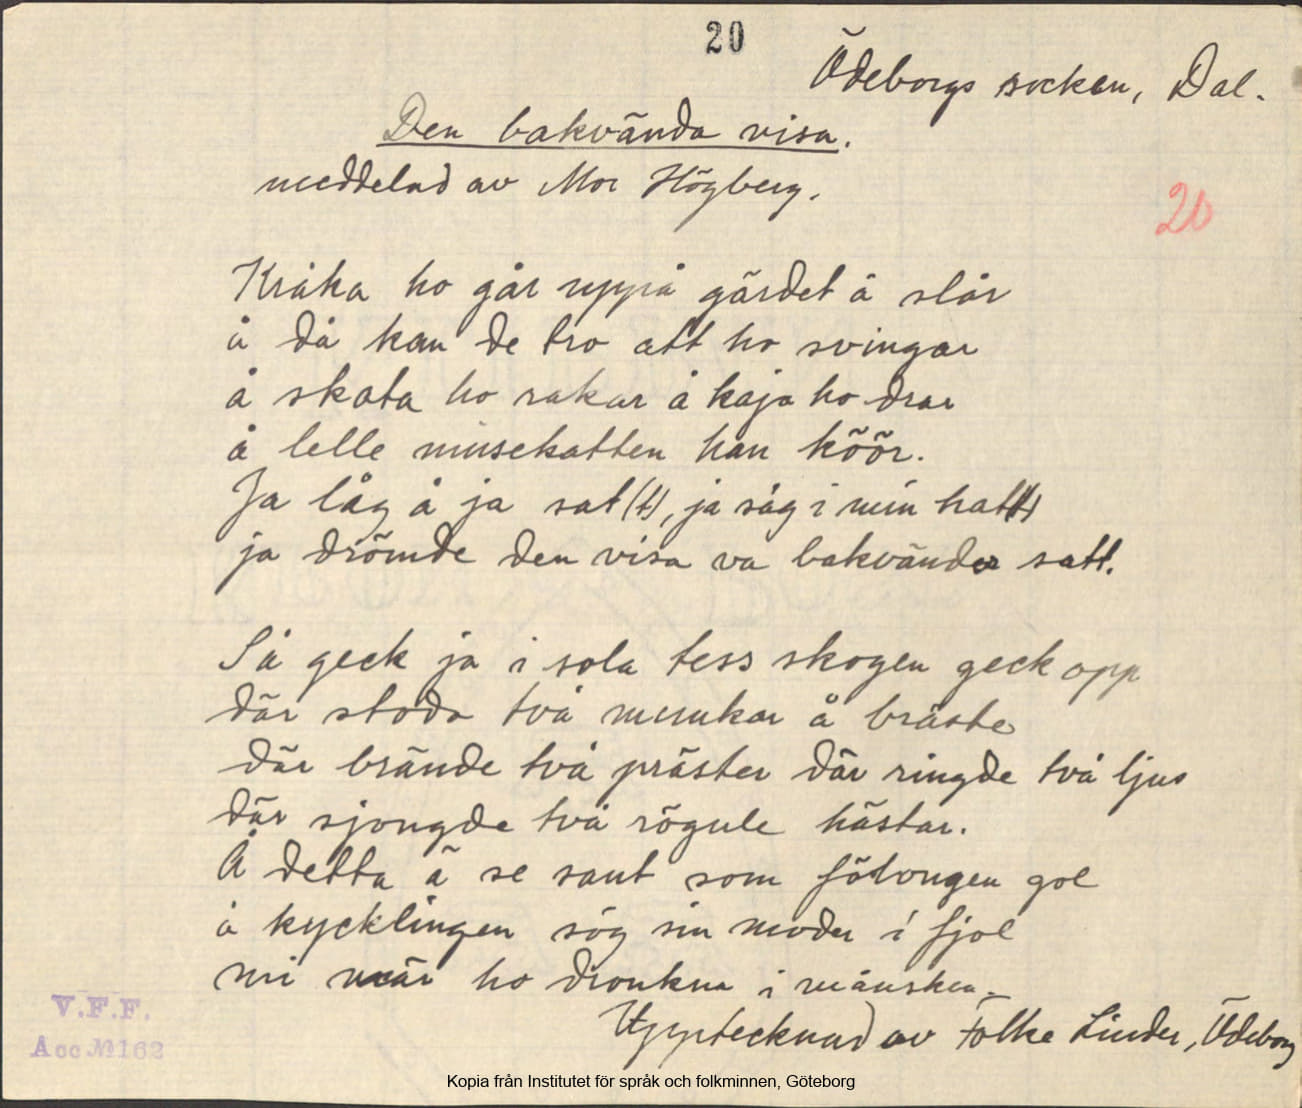 20
Ödeborgs socken, Dal.
Den bakvända visa.
meddelad av Mor Högberg.
20
Kråka ho går uppå gärdet å slår
å då kan de tro att ho svingar
å skata ho rakar å kaja ho drar
å lelle musekatten han köör.
Ja låg å ja sat(t), ja såg i min hatt
ja drömde den visa va bakvänder satt.
Så geck ja i sola tess skogen geck opp
där stodo två munkar å bräste
där brände två präster där ringde två ljus
där sjongde två rögule hästar.
Å detta ä se sant som fölongen gol
å kycklingen sög sin moder i fjol
mi mär ho dronkna i månsken.
Upptecknad av Folke Linder, Ödeborg
V.F.F.
Acc № 162
Kopia från Institutet för språk och folkminnen, Göteborg